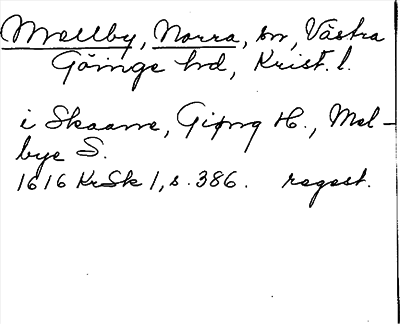 Mellby, Norra, sn, Västra
Göinge hd, Krist. l.
i Skaane, Giøng H., Mel-
bye S.
1616 KrSk 1, s. 386. regest.